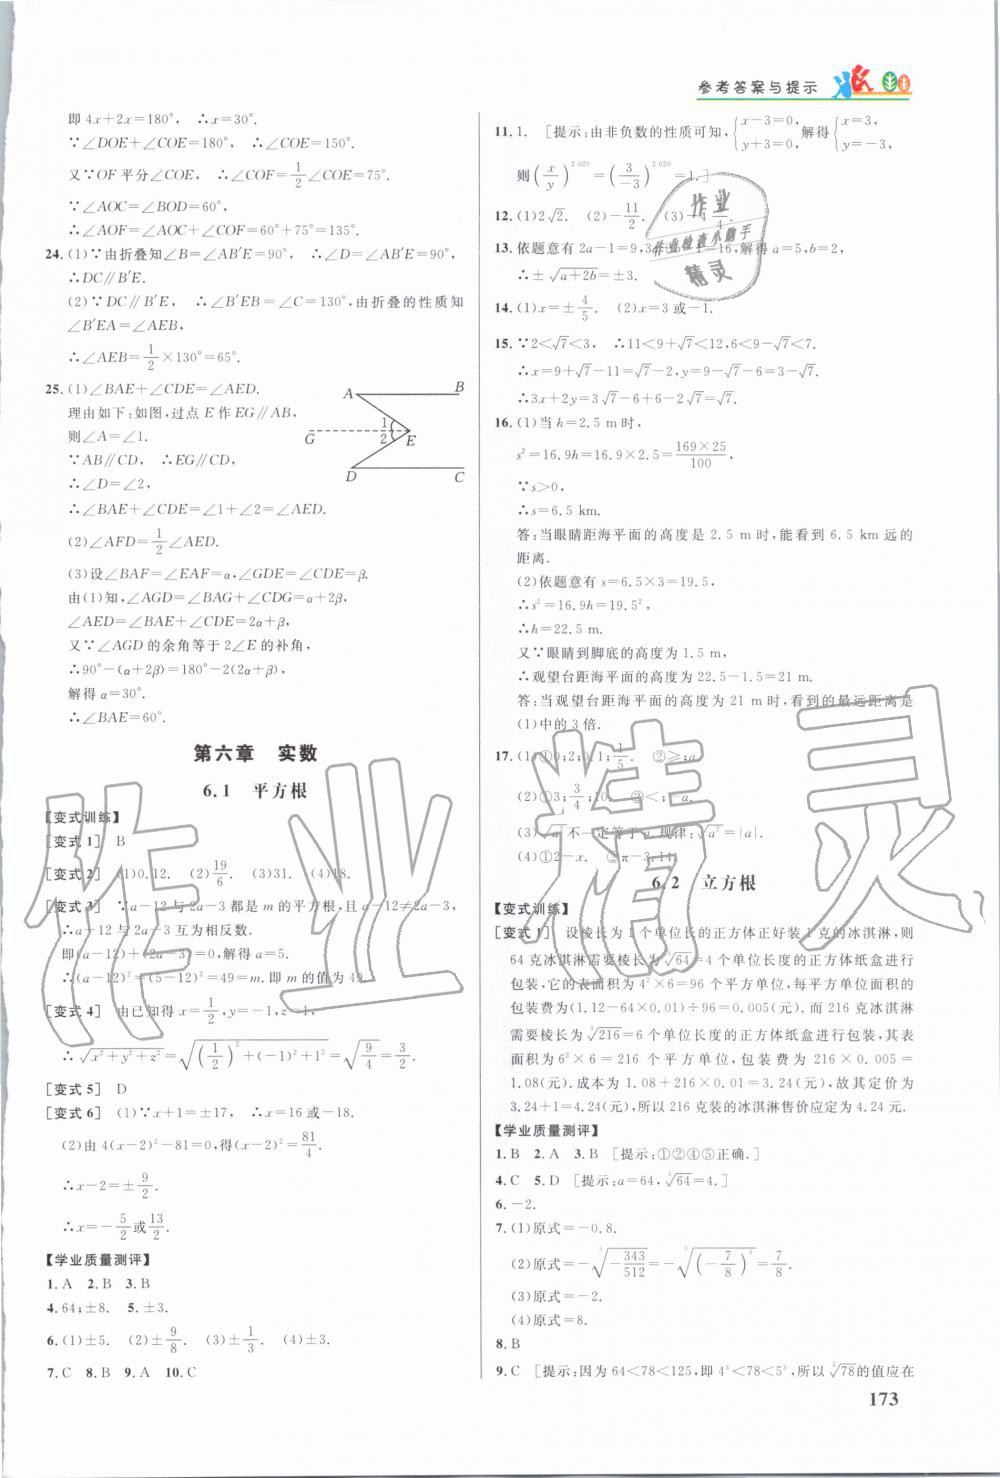 参考答案与提示
即4x+2x=180°, ∴x=30°.
∵∠DOE+∠COE=180°, ∴∠COE=150°.
又∵OF平分∠COE, ∴∠COF=1/2∠COE=75°.
∵∠AOC=∠BOD=60°,
∴∠AOF=∠AOC+∠COF=60°+75°=135°.
24.(1)∵由折叠知∠B=∠AB′E=90°, ∴∠AB′E=90°,
∴DC∥B′E.
(2)∵DC∥B′E, ∴∠B′EB=∠C=130°,由折叠的性质知
∠B′EA=∠AEB,
∴∠AEB=1/2×130°=65°.
25.(1)∠BAE+∠CDE=∠AED.
理由如下:如图,过点E作EG∥AB,
则∠A=∠1.
∵AB∥CD, ∴EG∥CD,
∴∠D=∠2,
∴∠BAE+∠CDE=∠1+∠2=∠AED.
A B
G 1 2 E
D C
(2)∠AFD=1/2∠AED.
(3)设∠BAF=∠EAF=α,∠GDE=∠CDE=β.
由(1)知,∠AGD=∠BAG+∠CDG=α+2β,
∠AED=∠BAE+∠CDE=2α+β,
又∵∠AGD的余角等于2∠E的补角,
∴90°-(α+2β)=180°-2(2α+β),
解得α=30°.
∴∠BAE=60°.
第六章 实数
6.1 平方根
【变式训练】
[变式1] B
[变式2] (1)0.12. (2)19/6. (3)31. (4)18.
[变式3] ∵a-12与2a-3都是m的平方根,且a-12≠2a-3,
∴a-12与2a-3互为相反数.
即(a-12)+(2a-3)=0,解得a=5.
∴(a-12)²=(5-12)²=49=m.即m的值为49.
[变式4] 由已知得x=1/2,y=-1,z=1,
∴√(x²+y²+z²)=√((1/2)²+(-1)²+1²)=√(9/4)=3/2.
[变式5] D
[变式6] (1)∵x+1=±17, ∴x=16或-18.
(2)由4(x-2)²-81=0,得(x-2)²=81/4.
∴x-2=±9/2.
∴x=-5/2或13/2.
【学业质量测评】
1.A 2.B 3.B
4.64;±8. 5.±3.
6.(1)±5. (2)±9/8. (3)±1/3. (4)±3.
7.C 8.B 9.A 10.C
11.1. [提示:由非负数的性质可知,{x-3=0, y+3=0, 解得{x=3, y=-3,
则(x/y)^2 020=(3/-3)^2 020=1.]
12.(1)2√2. (2)-11/2. (3)
13.依题意有2a-1=9, 解得a=5,b=2,
∴±√(a+2b)=±3.
14.(1)x=±4/5. (2)x=3或-1.
15.∵2<√7<3, ∴11<9+√7<12,6<9-√7<7.
∴x=9+√7-11=√7-2,y=9-√7-6=3-√7.
∴3x+2y=3√7-6+6-2√7=√7.
16.(1)当h=2.5 m时,
s²=16.9h=16.9×2.5=169×25/100,
∵s>0,
∴s=6.5 km.
答:当眼睛距海平面的高度是2.5 m时,能看到6.5 km远的
距离.
(2)依题意有s=6.5×3=19.5,
∴s²=16.9h=19.5²,
∴h=22.5 m.
又∵眼睛到脚底的高度为1.5 m,
∴观望台距海平面的高度为22.5-1.5=21 m.
答:当观望台距海平面的高度为21 m时,看到的最远距离是
(1)中的3倍.
17.(1)①0;2;0.1;1/5. ②≥;a.
(2)①3;3/4;10. ②<;-a.
(3)√a²不一定等于a.规律:√a²=|a|.
(4)①2-x. ②π-3.14.
6.2 立方根
【变式训练】
[变式1] 设棱长为1个单位长的正方体正好装1克的冰淇淋,则
64克冰淇淋需要棱长为∛64=4个单位长度的正方体纸盒进行
包装,它的表面积为4²×6=96个平方单位,每平方单位面积的
包装费为(1.12-64×0.01)÷96=0.005(元).而216克冰淇淋
需要棱长为∛216=6个单位长度的正方体纸盒进行包装,其表
面积为6²×6=216个平方单位,包装费为216×0.005=
1.08(元).成本为1.08+216×0.01=3.24(元),故其定价为
3.24+1=4.24(元),所以216克装的冰淇淋售价应定为4.24元.
【学业质量测评】
1.B 2.A 3.B [提示:①②④⑤正确.]
4.C 5.D [提示:a=64,∛64=4.]
6.-2.
7.(1)原式=-0.8.
(2)原式=-∛(-343/512)=-∛((-7/8)³)=7/8.
(3)原式=-2.
(4)原式=8.
8.B
9.C [提示:因为64<78<125,即4³<78<5³,所以∛78的值应在
173
作业
作业检查小助手
精灵
作业精灵